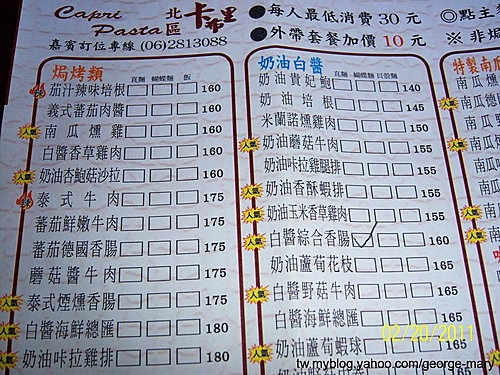 Capri Pasta 北區 卡布里
嘉賓訂位專線 (06)2813088
●每人最低消費 30 元
●外帶套餐加價 10 元
◎點主
※ 非焗
焗烤類
直麵 蝴蝶麵 飯
茄汁辣味培根 160
義式蕃茄肉醬 160
人氣 南瓜燻雞 160
白醬香草雞肉 160
人氣 奶油杏鮑菇沙拉 160
泰式牛肉 175
蕃茄鮮嫩牛肉 175
蕃茄德國香腸 175
蘑菇醬牛肉 175
人氣 泰式煙燻香腸 175
人氣 白醬海鮮總匯 180
人氣 奶油咔拉雞排 180
奶油白醬
直麵 蝴蝶麵 貝殼麵
奶油貴妃鮑 140
奶油培根 145
米蘭諾燻雞肉 150
人氣 奶油蘑菇牛肉 155
奶油咔拉雞腿排 155
人氣 奶油香酥蝦排 155
人氣 奶油玉米香草雞肉 155
人氣 白醬綜合香腸 160
奶油蘆荀花枝 165
人氣 白醬野菇牛肉 165
白醬海鮮總匯 165
人氣 奶油蘆荀蝦球 165
特製南
南瓜
南瓜德
南瓜
人氣 南瓜
南瓜
南瓜
人氣 南瓜
人氣 南瓜
02/20/2011
tw.myblog.yahoo.com/george-mary